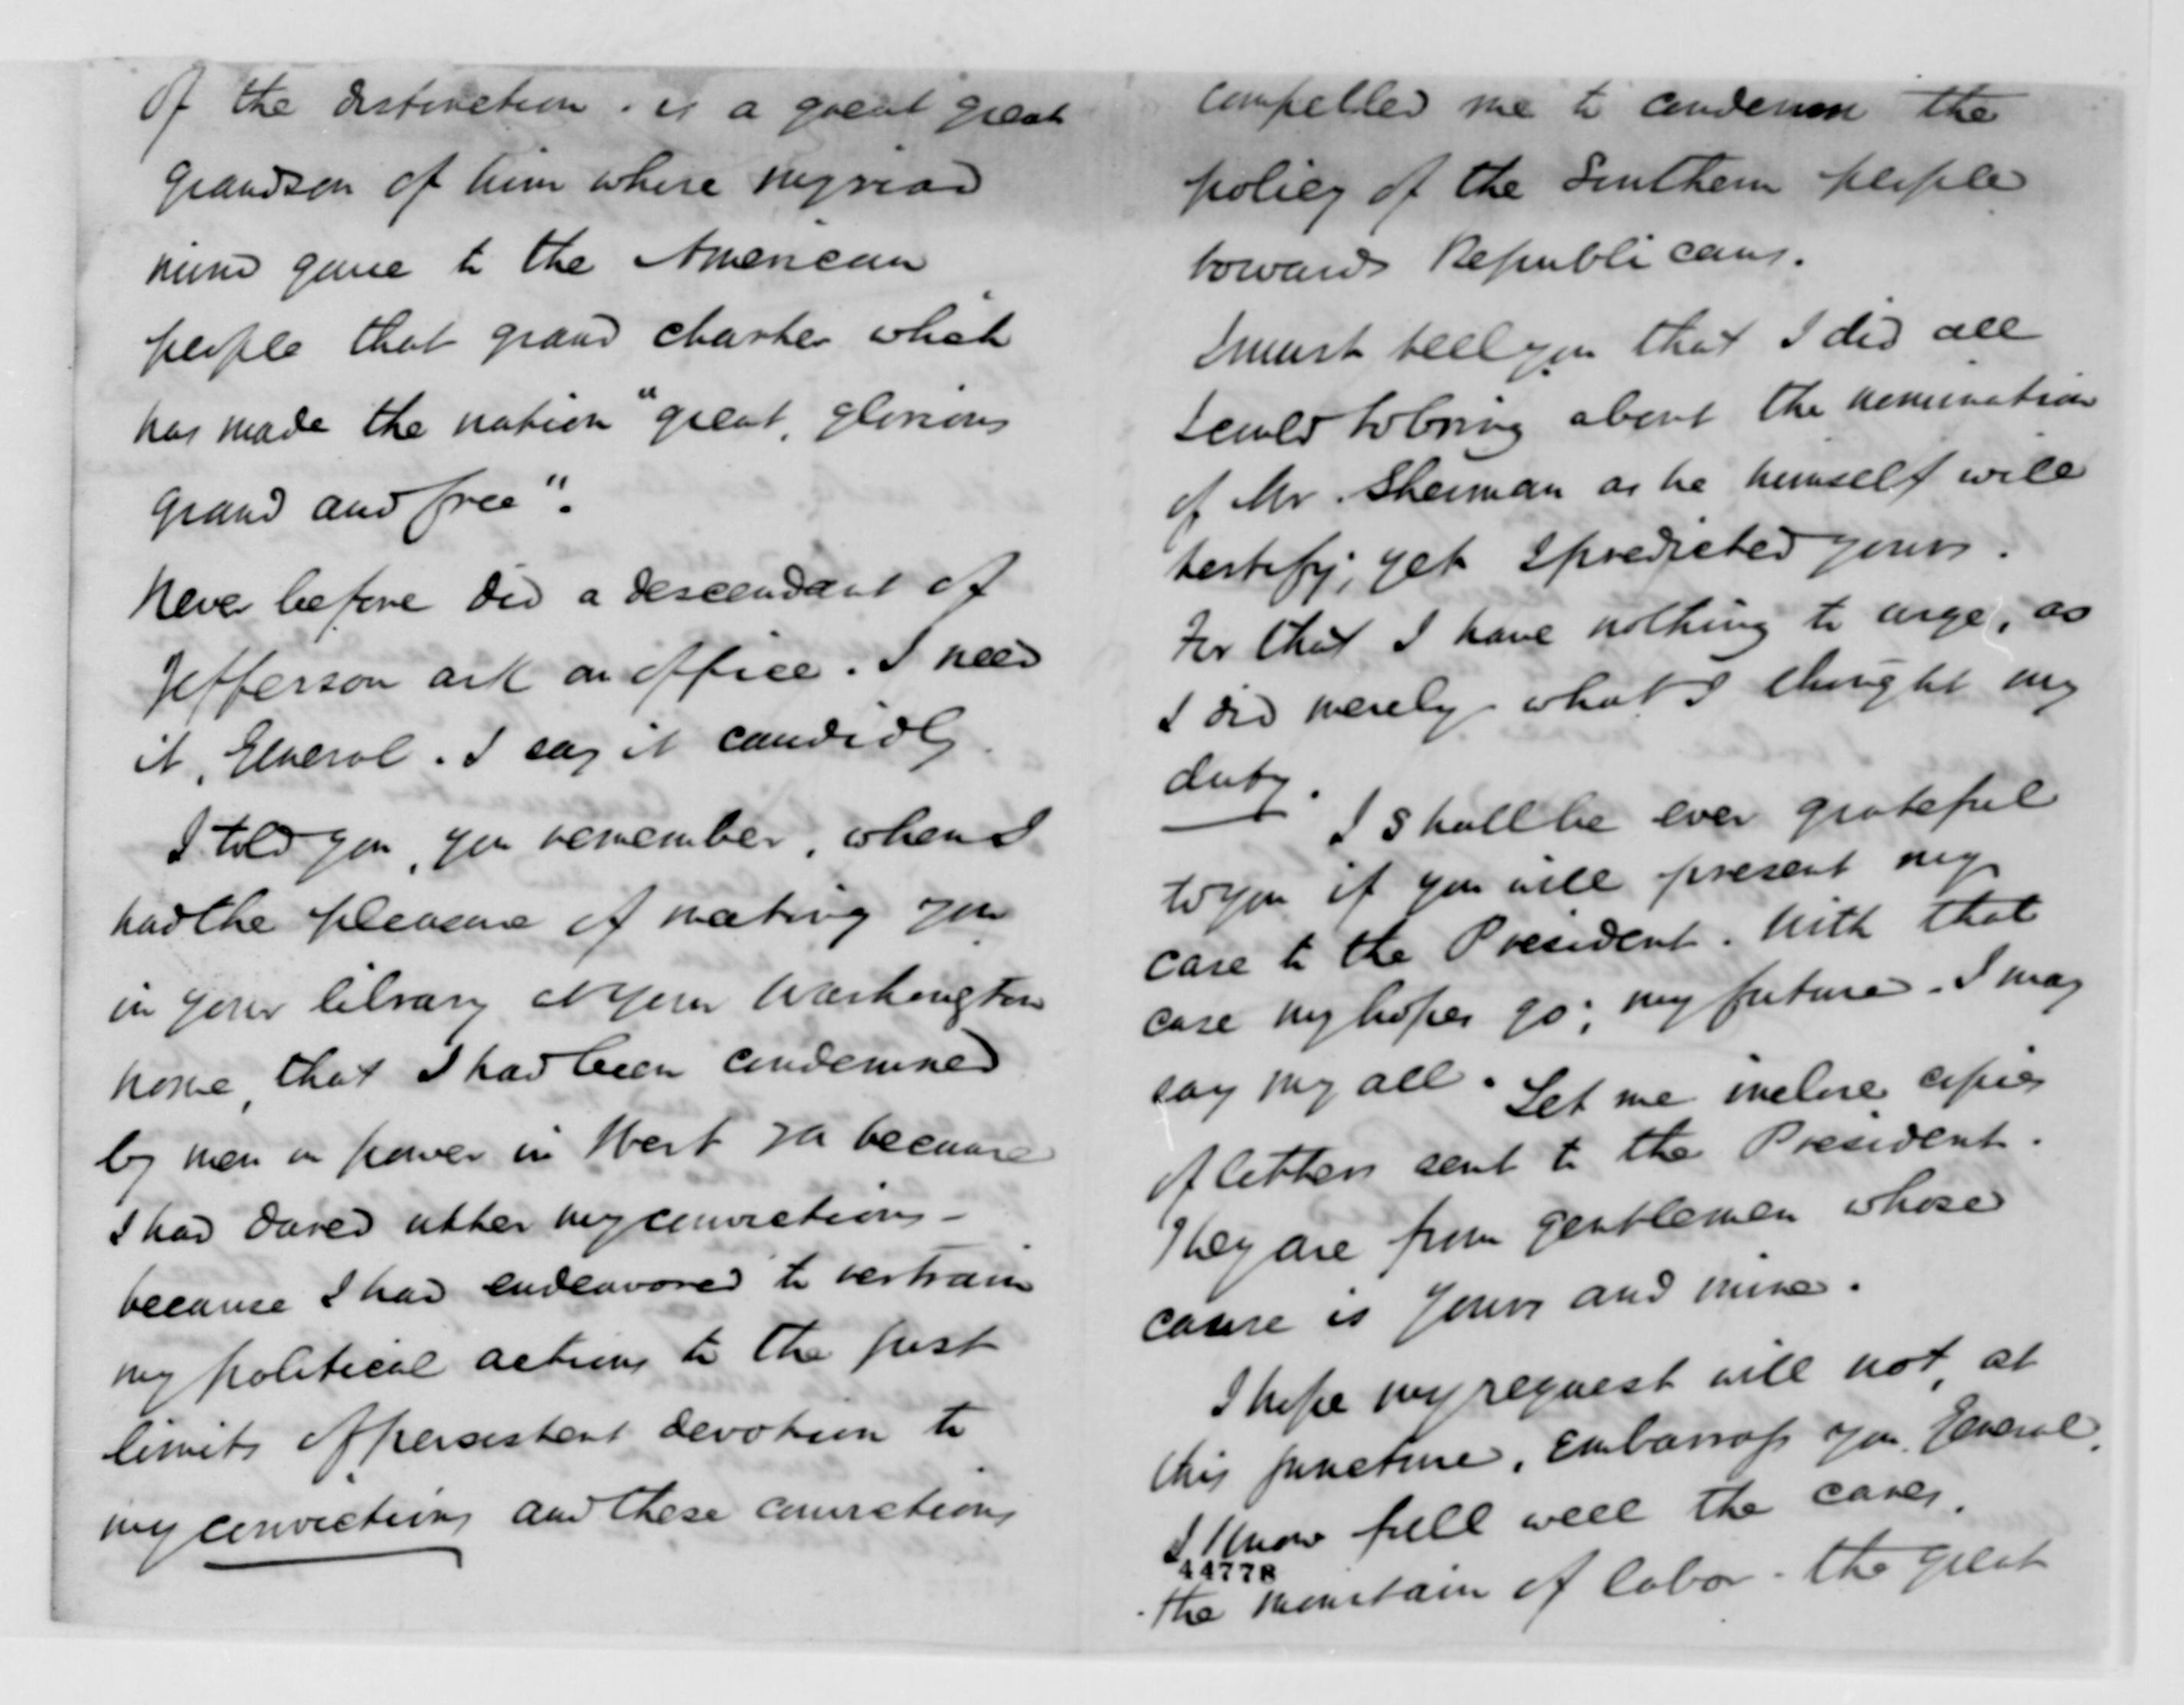 of the distinction. is a great great
grandson of him whose myriad
mind gave to the American
people that grand charter which
has made the nation "great, glorious
grand and free".
Never before did a descendant of
Jefferson ask an office. I need
it, General. I say it candidly.
I told you, you remember, when I
had the pleasure of meeting you
in your library at your Washington
home, that I had been condemned
by men in power in West Va because
I had dared utter my convictions -
because I had endeavored to restrain
my political actions to the just
limits of persistent devotion to
my convictions and these convictions
compelled me to condemn the
policy of the Southern people
towards Republicans.
I must tell you that I did all
I could to bring about the nomination
of Mr. Sherman as he himself will
testify; yet I predicted yours.
For that I have nothing to urge, as
I did merely what I thought my
duty.
I shall be ever grateful
to you if you will present my
case to the President. With that
case my hopes go; my future - I may
say my all. Let me inclose copies
of letters sent to the President.
They are from gentlemen whose
cause is yours and mine.
I hope my request will not, at
this juncture, embarrass you, General.
I know full well the cares,
44778
the mountain of labor - the great